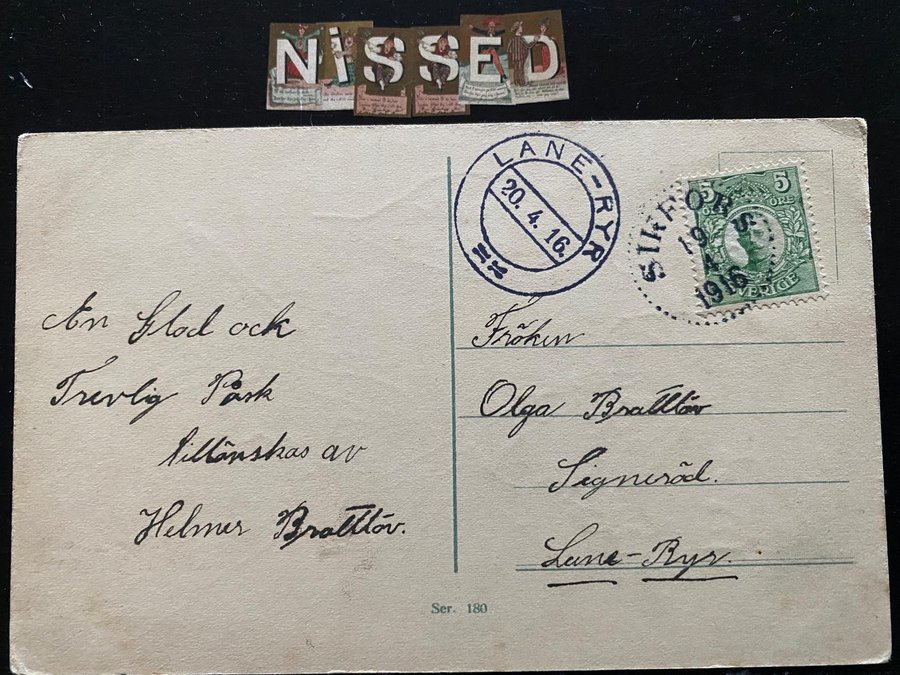 NiSSED
LANE-RYR
20.4.16.
SIKFORS
19
4
1916
5 5
ÖRE
SVERIGE
En Glad ock
Trevlig Påsk
tillönskas av
Helmer Brattlöv.
Fröken
Olga Brattlöv
Signeröd.
Lane-Ryr.
Ser. 180